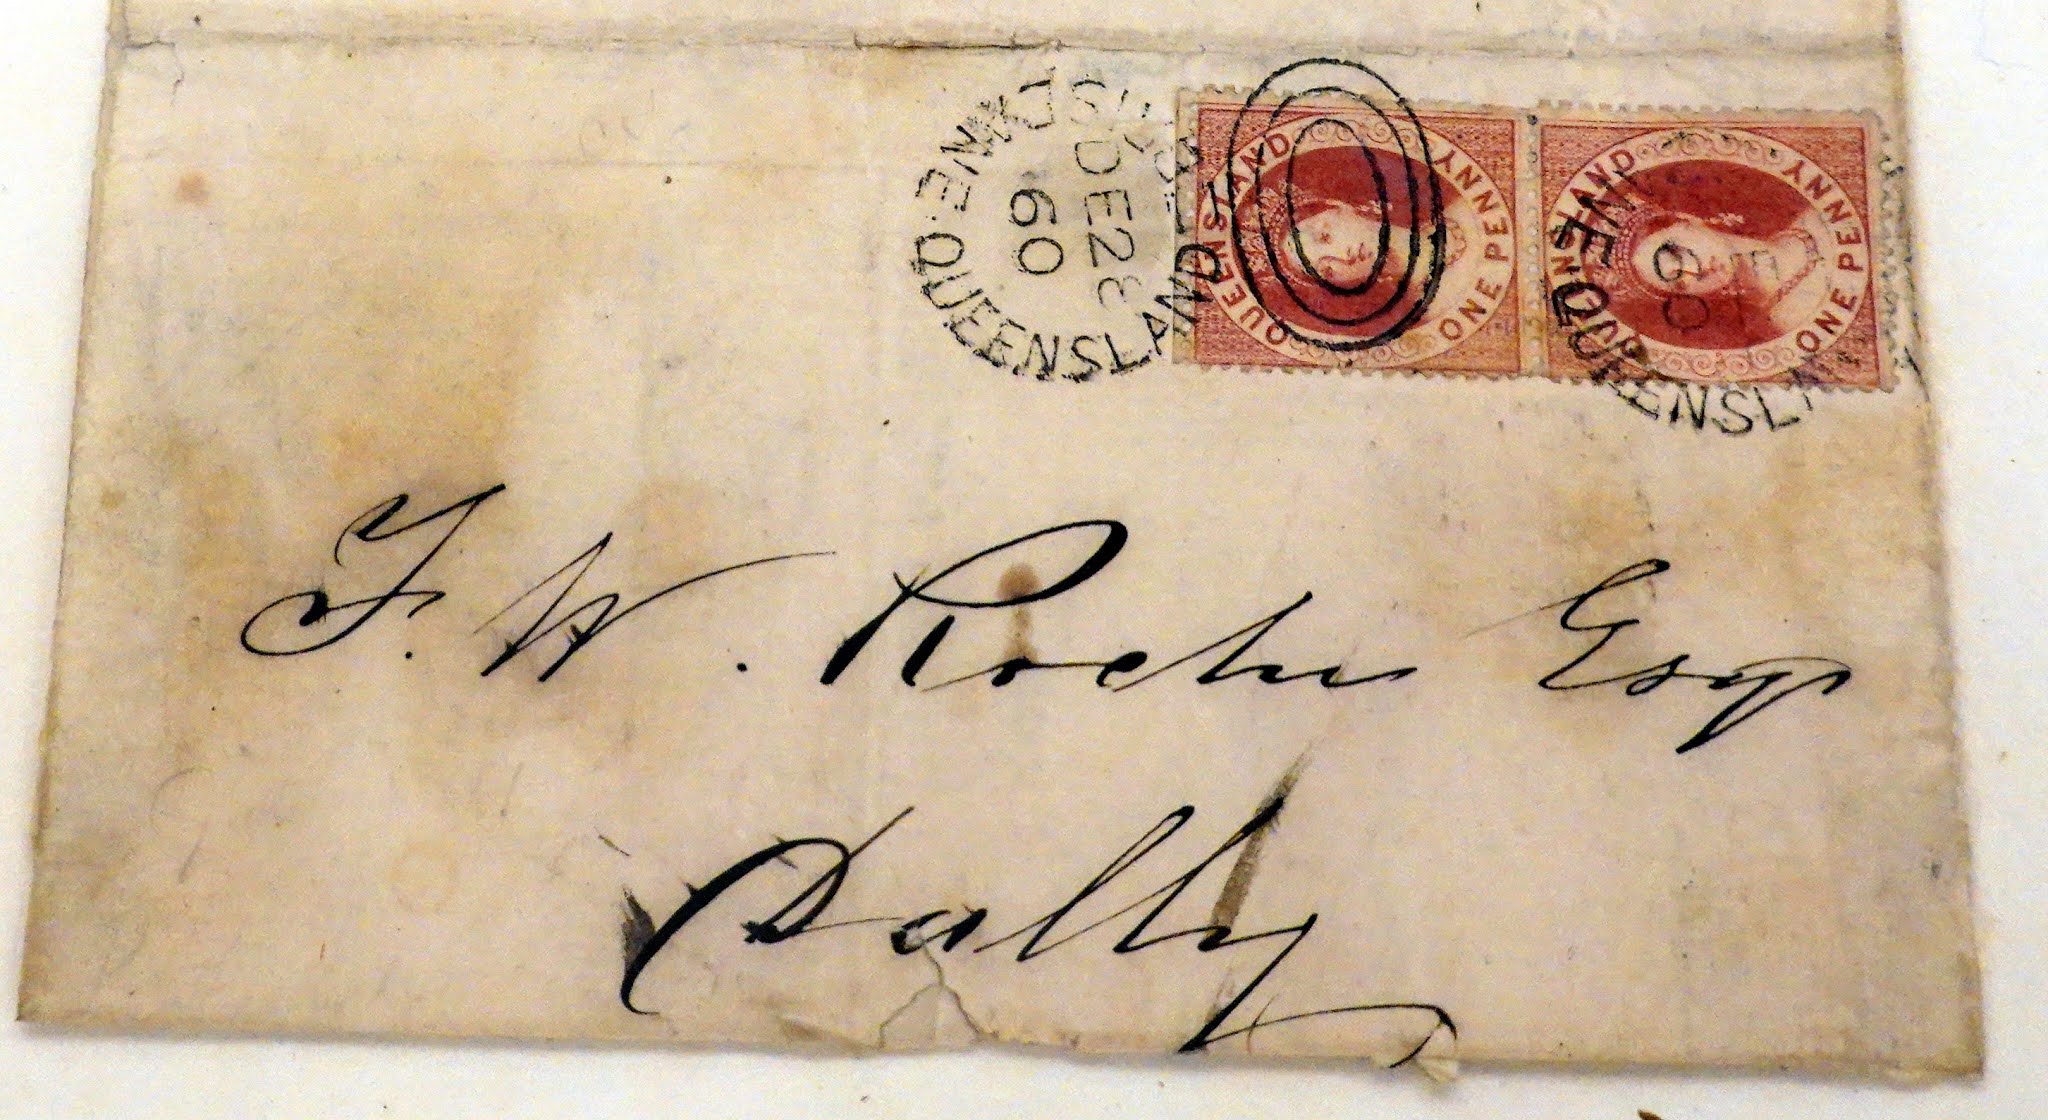 DE 28
60
QUEENSLAND
QUEENSLAND
ONE PENNY
QUEENSLAND
ONE PENNY
60
QUEENSLA
F. W. Roche Esq
Dalby